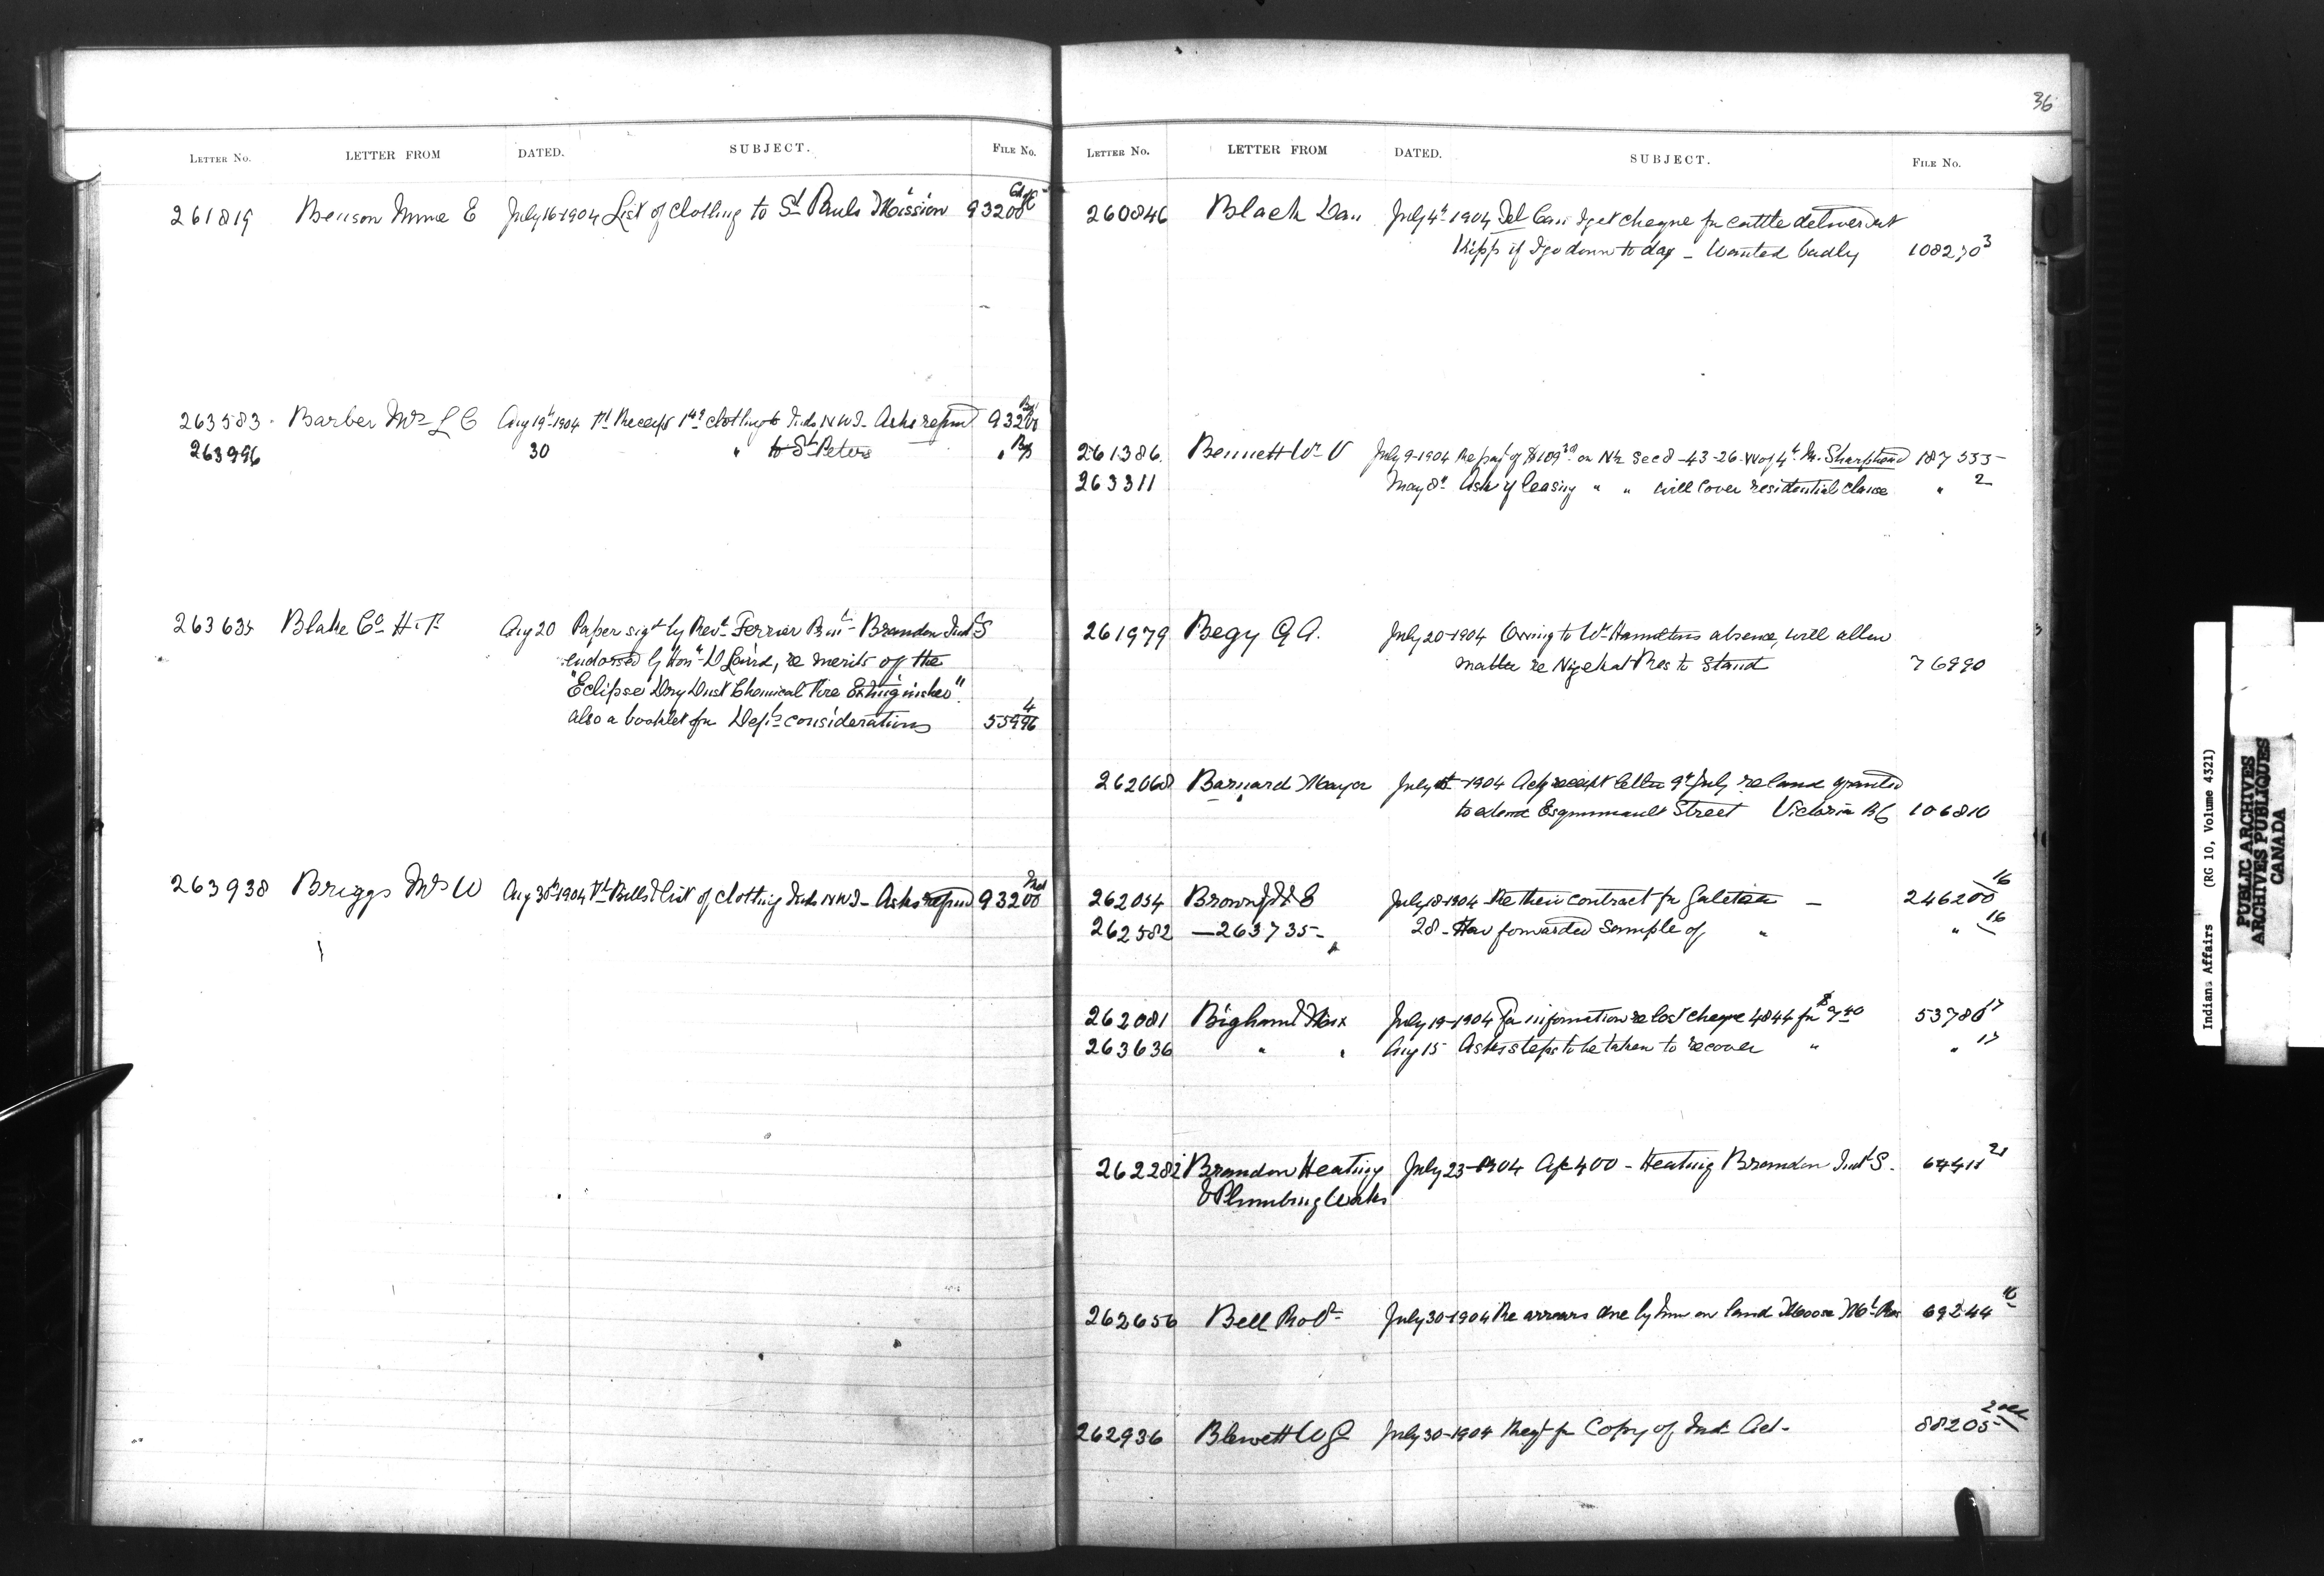 36
LETTER NO. LETTER FROM DATED. SUBJECT. FILE NO.
261819 Benson Mme E July 16-1904 List of clothing to St Pauls Mission 93200
263583 Barber Mrs L C Aug 19th 1904 Receipt clothing to Inds NWT - Asks refund 93200
263996 30 " to St Peters "
263634 Blake Co H. Aug 20 Paper sigd by Revd Ferrier Prinl - Brandon Indl S
endorsed by Honl D Laird, re merits of the
"Eclipse Dry Dust Chemical Fire Extinguisher".
also a booklet for Depts considerations 55996 4
263938 Briggs Mrs W Aug 30th 1904 Bills & list of clothing Inds NWT - Asks refund 93200
LETTER NO. LETTER FROM DATED. SUBJECT. FILE NO.
260846 Black Dan July 4th 1904 Tel Can I get cheque for cattle delivered at
Kipp if I go down to day - Wanted badly 108270 3
261386 Bennett Wm V July 9-1904 Re pay of $109 on Sec 8-43-26-W of 4th M. Sharphead 187555
263311 May 8th Ask if leasing " " will cover residential clause " 2
261979 Begy G A. July 20-1904 Owing to Wm Hamiltons absence, will allow
matter re Res to stand 76990
262068 Barnard Mayor July 1904 Ack receipt letter 9th July re land granted
to extend Esquimault Street Victoria BC 106810
262054 Brown July 18-1904 Re their contract for Galetea - 246200 16
262582 -263735- 28- Hav forwarded sample of " " 16
262081 July 19-1904 For information re lost cheque 4844 for $9.40 53786 17
263636 " " Aug 15 Asks steps to be taken to recover " " 17
262282 Brandon Heating July 23-1904 A/c 400 - Heating Brandon Indl S.
& Plumbing Works
262656 Bell Robt July 30-1904 Re arrears due by him on land Moose Mt Res 69244
262936 Blewett W G July 30-1904 Req for Copy of Ind. Act - 88205
Indian Affairs (RG 10, Volume 4321)
PUBLIC ARCHIVES
ARCHIVES PUBLIQUES
CANADA